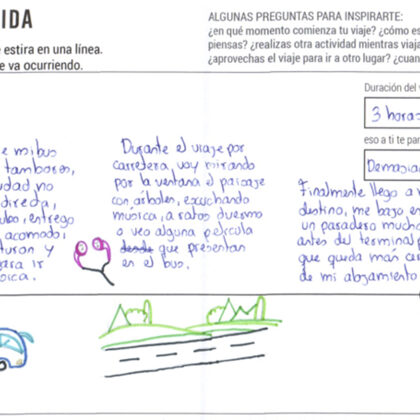 IDA
e estira en una línea.
e va ocurriendo.
ALGUNAS PREGUNTAS PARA INSPIRARTE:
¿en qué momento comienza tu viaje? ¿cómo es
piensas? ¿realizas otra actividad mientras viaja
¿aprovechas el viaje para ir a otro lugar? ¿cuan
Duración del v
3 horas
eso a ti te par
Demasia
e mi bus
tambores,
udad no
direda,
entrego
acomodo,
turon y
para ir
Durante el viaje por
carretera, voy mirando
por la ventana el paisaje
con árboles, escuchando
música, a ratos duermo
o veo alguna película
desde que presentan
en el bus.
Finalmente llego a m
destino, me bajo en
un paradero mucho
antes del terminal p
que queda más cer
de mi alojamiento